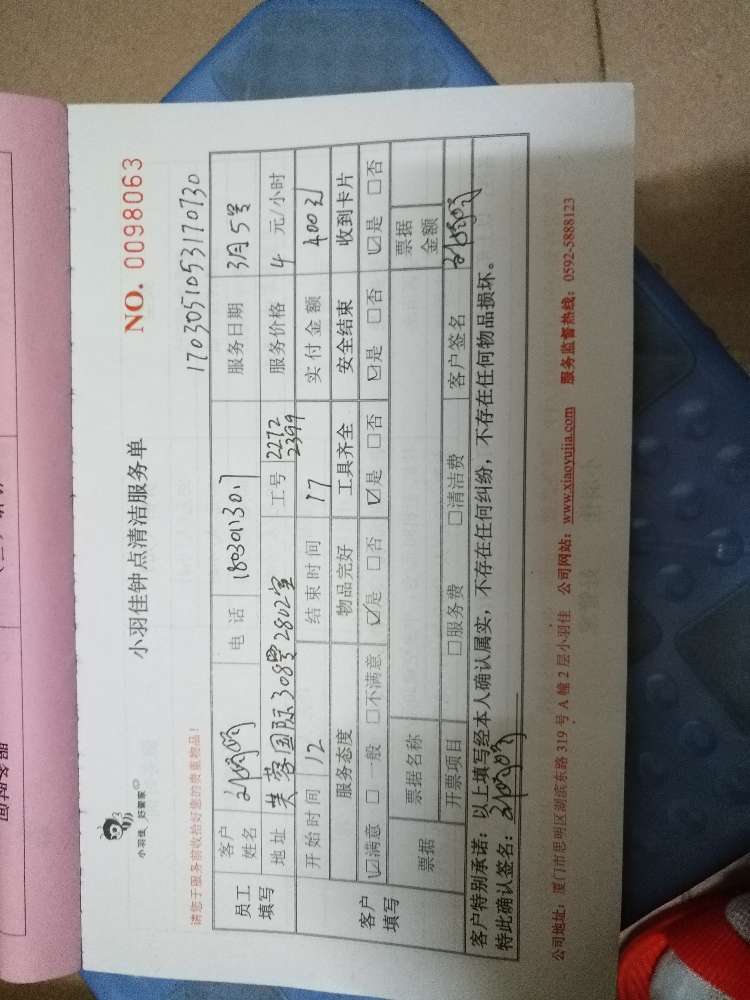 小羽佳 好管家
小羽佳钟点清洁服务单
NO. 0098063
请您于服务前收拾好您的贵重物品！
1703051053170730
员工填写 客户姓名 电话 服务日期 3月5号
地址 芙蓉国际308号2802室 工号 2272 2399 服务价格 4 元/小时
开始时间 12 结束时间 17 实付金额 400元
客户填写 服务态度 物品完好 工具齐全 安全结束 收到卡片
☑满意 □一般 □不满意 ☑是 □否 ☑是 □否 ☑是 □否 ☑是 □否
票据 票据名称 票据金额
开票项目 □服务费 □清洁费 客户签名
客户特别承诺：以上填写经本人确认属实，不存在任何纠纷，不存在任何物品损坏。
特此确认签名：
公司地址：厦门市思明区湖滨东路 319 号 A 幢 2 层小羽佳 公司网站：www.xiaoyujia.com 服务监督热线：0592-5888123
服务时间